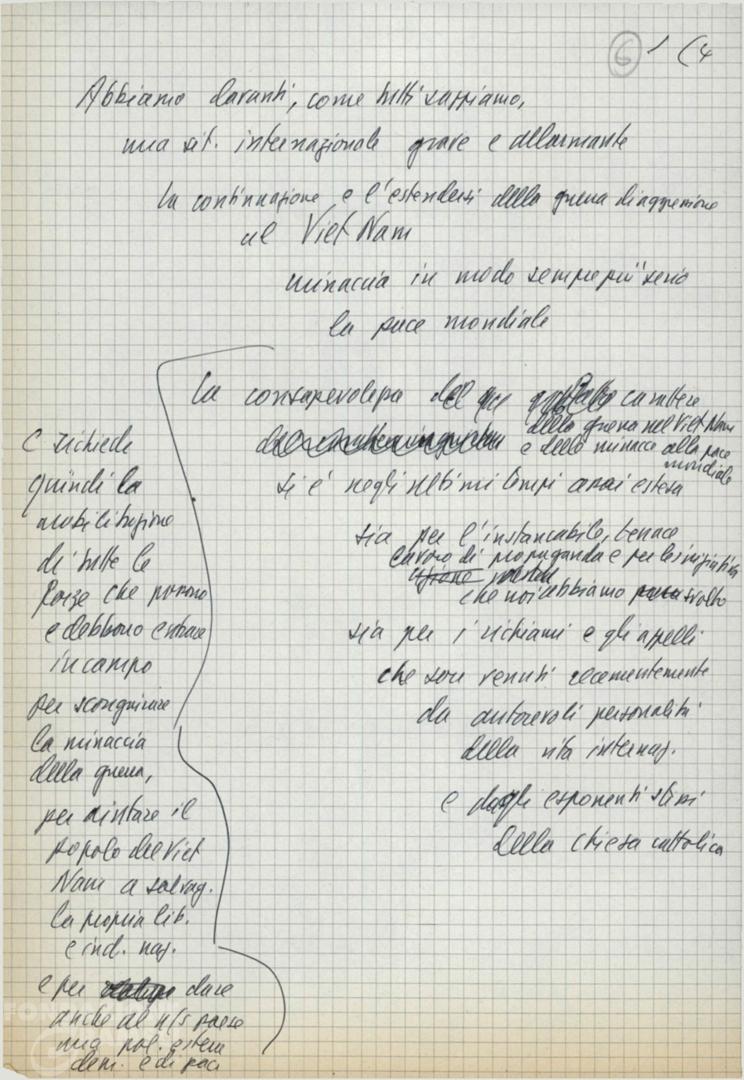 6 1 (4
Abbiamo davanti, come tutti sappiamo,
una sit. internazionale grave e allarmante
la continuazione e l'estendersi della guerra di aggressione
al Viet Nam
minaccia in modo sempre più serio
la pace mondiale
La consapevolezza del carattere
della guerra nel Viet Nam
e delle minacce alla pace
mondiale
si è negli ultimi tempi assai estesa
sia per l'instancabile, tenace
lavoro di propaganda e per le iniziative
che noi abbiamo svolto
sia per i richiami e gli appelli
che son venuti recentemente
da autorevoli personalità
della vita internaz.
e dagli esponenti stessi
della chiesa cattolica
C richiede
quindi la
mobilitazione
di tutte le
forze che possono
e debbono entrare
in campo
per scongiurare
la minaccia
della guerra,
per aiutare il
popolo del Viet
Nam a salvag.
la propria lib.
e ind. naz.
e per dare
anche al n/s paese
una pol. estera
dem. e di pace